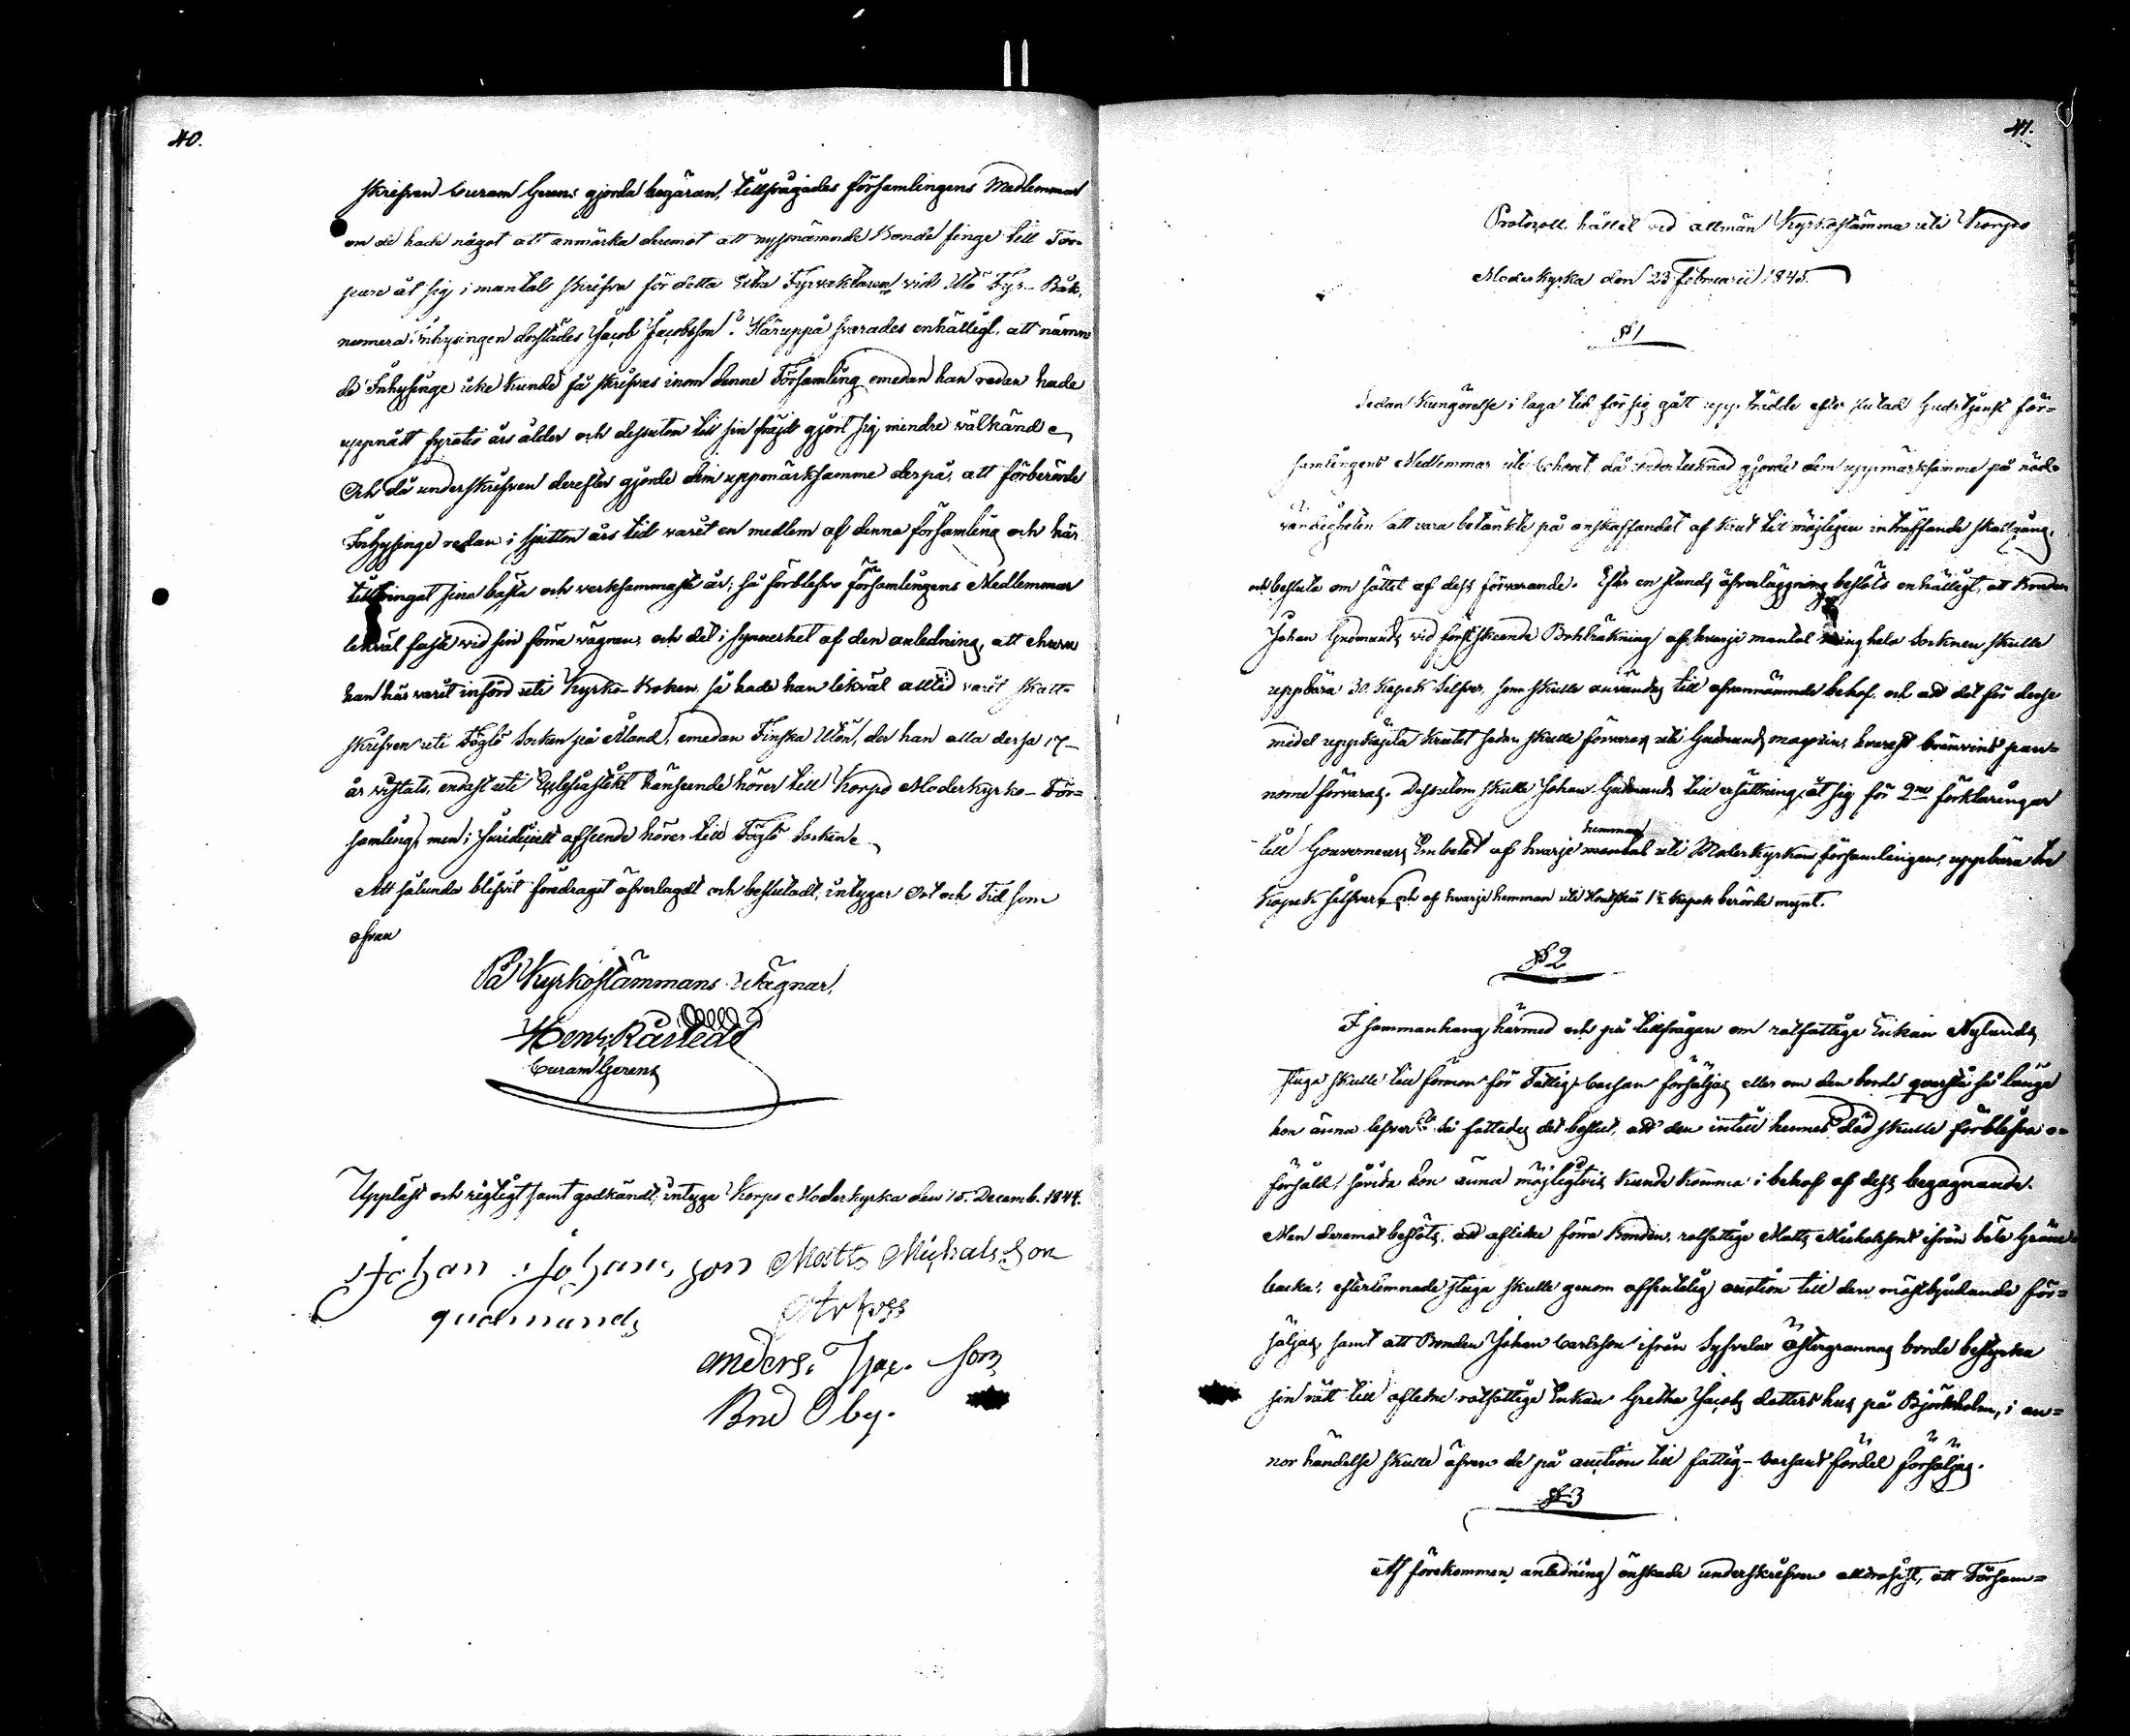 40.
skrifven Curam Gerens gjorda begäran, tillfrågades församlingens Medlemmar
om de hade något att anmärka deremot att nyssnämnde Bonde finge till Tor-
pare åt sig i mantal skrifva för detta Extra Fyrvaktaren vid Utö Fyr-Båk,
numera Inhysingen derstädes Jacob Jacobsson? Häruppå svarades enhälligt, att nämn-
de Inhysinge icke kunde få skrifvas inom denne Församling emedan han redan hade
uppnått fyratio års ålder och dessutom till sin fräjd gjort sig mindre välkänd
Och då underskrifven derefter gjorde dem uppmärksamme derpå, att förberörde
Inhysinge redan i sjutton års tid varit en medlem af denna församling och här
tillbringat sina bästa och verksammaste år; så förblefvo församlingens Medlemmar
lekväl fasta vid sin förra vägran, och det i synnerhet af den anledning, att ehuru
han här varit införd uti Kyrko-Boken, så hade han lekväl alltid varit skatt-
skrifven uti Föglö Socken på Åland, emedan Finska Utön, der han alla dessa 17-
år vistats, endast uti Ecclesiastikt hänseende hörer till Korpo Moderkyrko-För=
samling, men i Juridiciellt afseende hörer till Föglö Socken
Att sålunda blifvit föredraget öfverlagdt och beslutadt, intygar Ort och Tid som
ofvan
På Kyrkostämmans Vägnar,
Henr. Råstedt
Curam Gerens
Uppläst och rigtigt samt godkändt, intyga Korpo Moderkyrka den 15. Decemb. 1844.
Johan Johansson Matts Michalsson
gudmunds
anders Isac son
Bnd Oby.
41.
Protocoll hållet vid allmän Kyrkostämma uti Korpo
Moderkyrka den 23 Februarii 1845.
§ 1
Sedan Kungörelse i laga tid för sig gåt upp trädde efter slutad Gudstjenst för=
samlingens Medlemmar uti Choret, då undertecknad gjorde dem uppmärksamme på nöd-
vändigheten att vara betänkte på anskaffandet af krut till möjligen inträffande skallgång,
och besluta om sättet af dess förvarande. Efter en stunds öfverläggning beslöts enhälligt, att Bonden
Johan Gudmunds vid först skeende af hvarje mantal kring hela Socknen skulle
uppbära 30. Kopek Silfver, som skulle användas till ofvannämnde behof, och att det för desse
medel uppköpta krutet sedan skulle förvaras uti Gudmunds magasin, hvarest brännvins pan=
norne förvaras. Dessutom skulle Johan Gudmunds till ersättning åt sig för 2ne förklaringar
till Gouverneurs Embetet af hvarje hemman uti Moderkyrkan församlingen, uppbära tre
Kopek silfver och af hvarje hemman uti Houtskär 1½ Kopek berörde mynt.
§ 2
I sammanhang härmed och på tillfrågan om rotfattige Enkan Nylunds
stuga skulle till förmon för Fattig-Cassan försäljas eller om den borde qvarstå så länge
hon änna lefver? så fattades det beslut, att den intill hennes död skulle förblifva o=
försåld, såvida hon änna möjligtvis kunde komma i behof af dess begagnande.
Men deremot beslöts, att aflidne förra Bonden, rotfattige Matts Michelssons ifrån
backa, efterlemnade stuga skulle genom offentelig auction till den mästbjudande för=
säljas, samt att Bonden Johan Carlsson ifrån Östergrannas borde bestyrka
sin rätt till aflidne rotfattige Enkan Gretha Jacobs dotters hus på Björkholm, i an=
nor händelse skulle äfven de på auction till fattig-Cassans fördel försäljas.
§ 3
Af förekommen anledning önskade underskrifven att Försam=